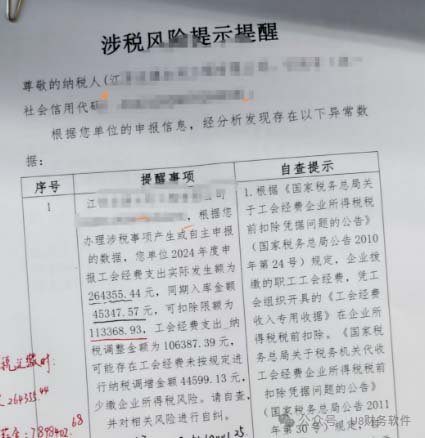 涉税风险提示提醒
尊敬的纳税人(江
社会信用代码
根据您单位的申报信息，经分析发现存在以下异常数
据：
序号
提醒事项
自查提示
1
江
公司
，根据您
办理涉税事项产生或自主申报
的数据，您单位2024年度申
报工会经费支出实际发生额为
264355.44元，同期入库金额
45347.57元，可扣除限额为
113368.93，工会经费支出_纳
税调整金额为106387.39元，可
能存在工会经费未按规定进
行纳税调增金额44599.13元，
少缴企业所得税风险。请自查，
并对相关风险进行自纠。
1.根据《国家税务总局关
于工会经费企业所得税税
前扣除凭据问题的公告》
（国家税务总局公告2010
年第24号）规定，企业拨
缴的职工工会经费，凭工
会组织开具的《工会经费
收入专用收据》在企业所
得税税前扣除。《国家税
务总局关于税务机关代收
工会经费企业所得税税前
扣除
公告2011
年第30号）规定，自
264355.44
公众号·U8财务软件